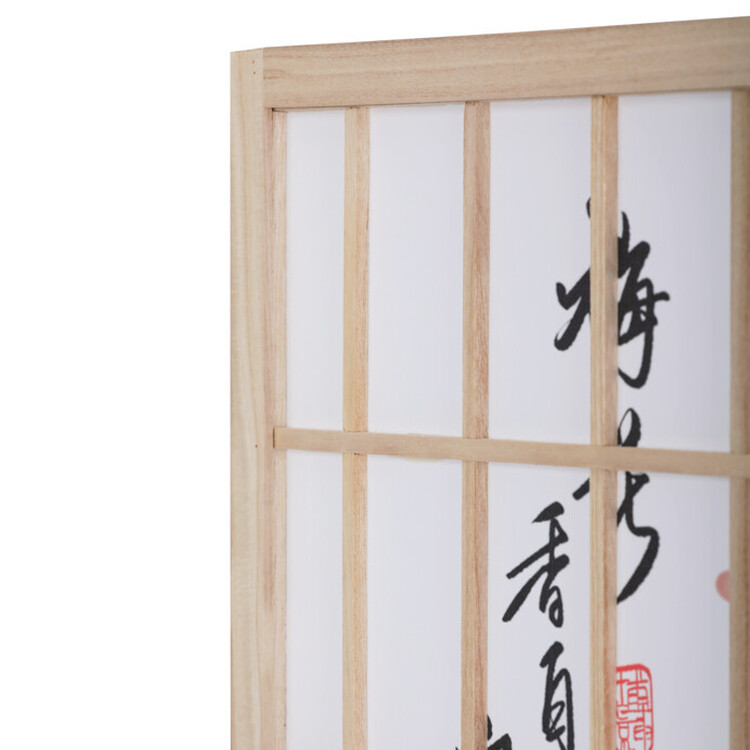 梅花
香自